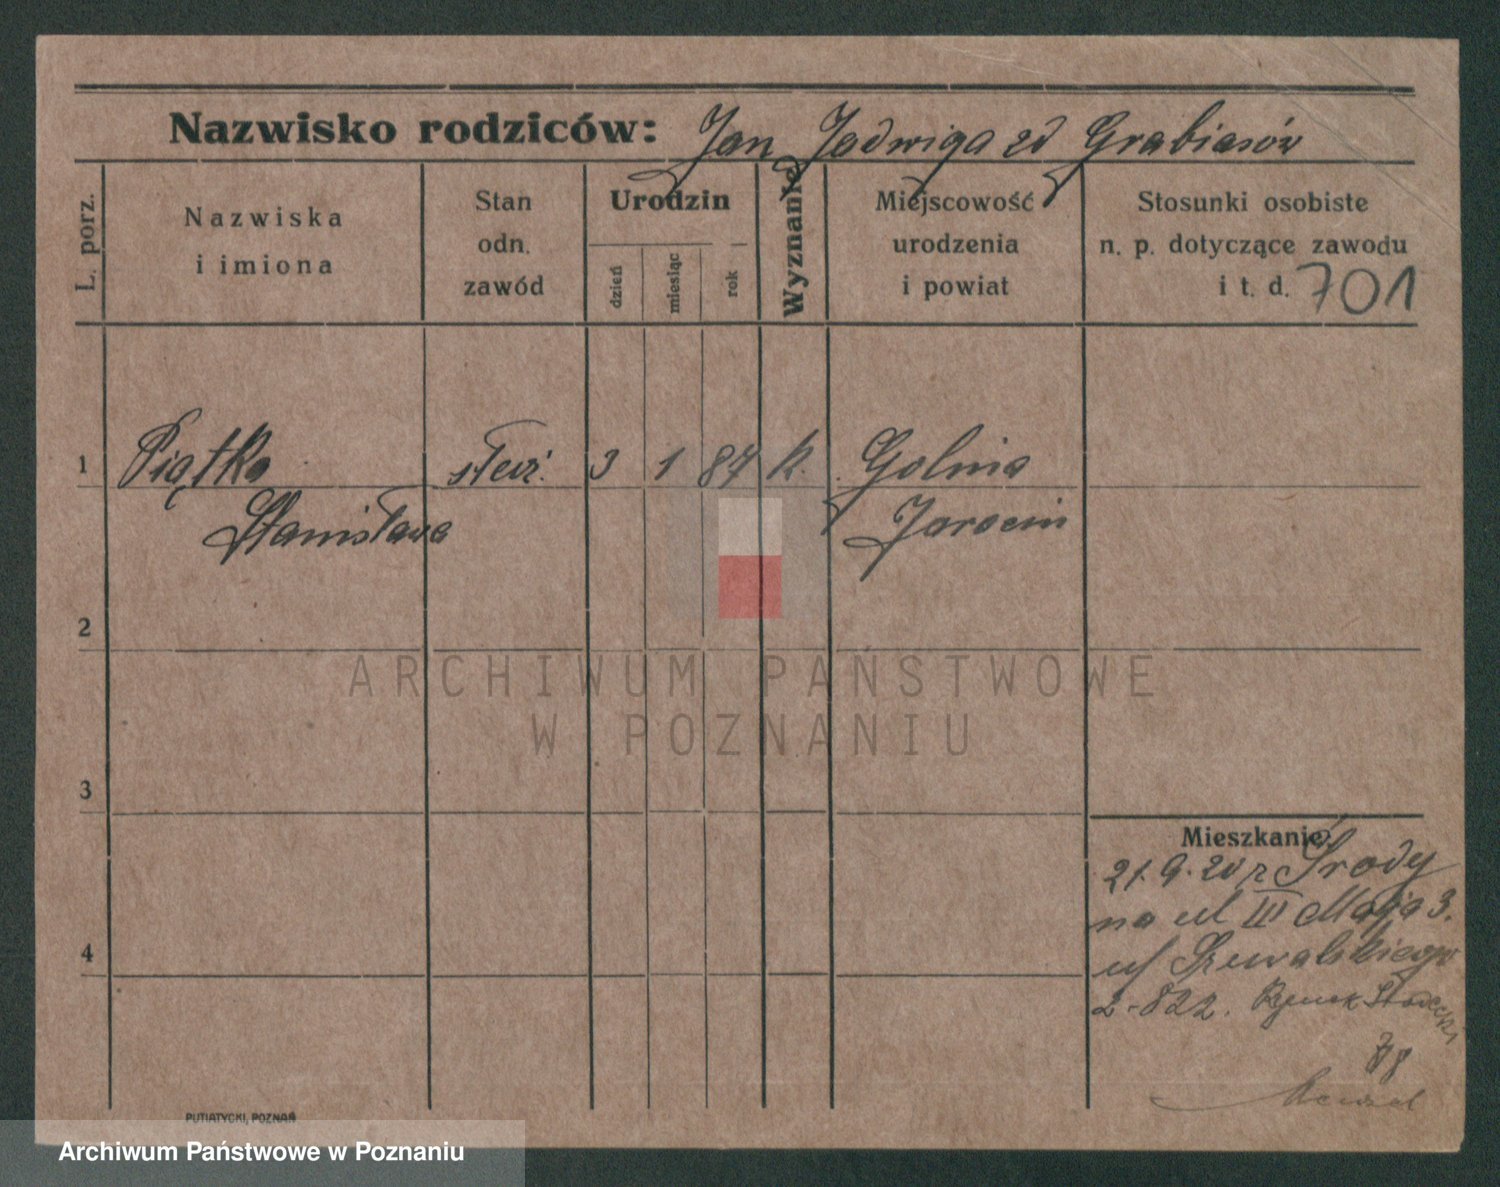 Nazwisko rodziców: Jan Jadwiga zd Grabiasów
L. porz.
Nazwiska
i imiona
Stan
odn.
zawód
Urodzin
dzień
miesiąc
rok
Wyznanie
Miejscowość
urodzenia
i powiat
Stosunki osobiste
n. p. dotyczące zawodu
i t. d. 701
1 Piątka służ. 3 1 87 k. Golina
Stanisława Jarocin
2
3
4
Mieszkanie:
21.9.20 z Środy
na ul III Maja 3.
ul Szewalskiego
2-822. Rynek Śródecki
PUTIATYCKI, POZNAŃ
ARCHIWUM PAŃSTWOWE
W POZNANIU
Archiwum Państwowe w Poznaniu